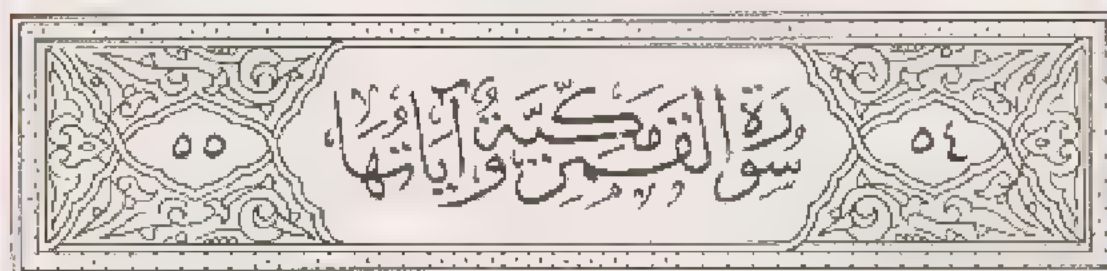 ٥٤ سُورَةُ القَمَرِ مَكِّيَّةٌ وَآيَاتُهَا ٥٥